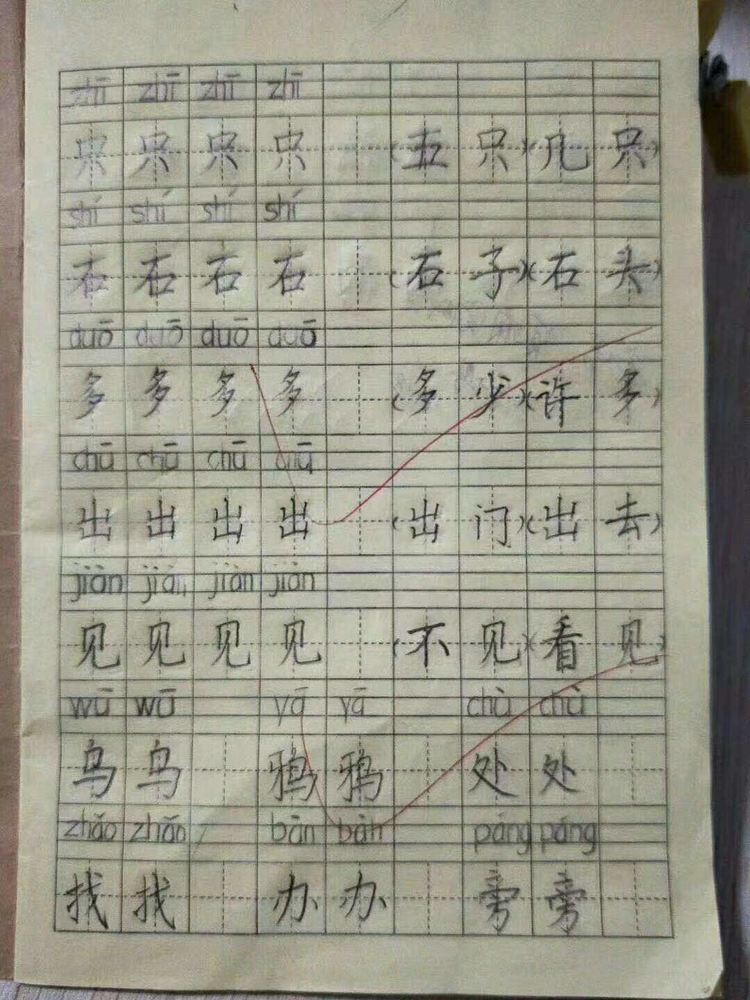 zhī zhī zhī zhī
只 只 只 只 (五 只)(几 只)
shí shí shí shí
石 石 石 石 (石 子)(石 头)
duō duō duō duō
多 多 多 多 (多 少)(许 多)
chū chū chū chū
出 出 出 出 (出 门)(出 去)
jiàn jiàn jiàn jiàn
见 见 见 见 (不 见)(看 见)
wū wū yā yā chù chù
乌 乌 鸦 鸦 处 处
zhǎo zhǎo bān bàn páng páng
找 找 办 办 旁 旁